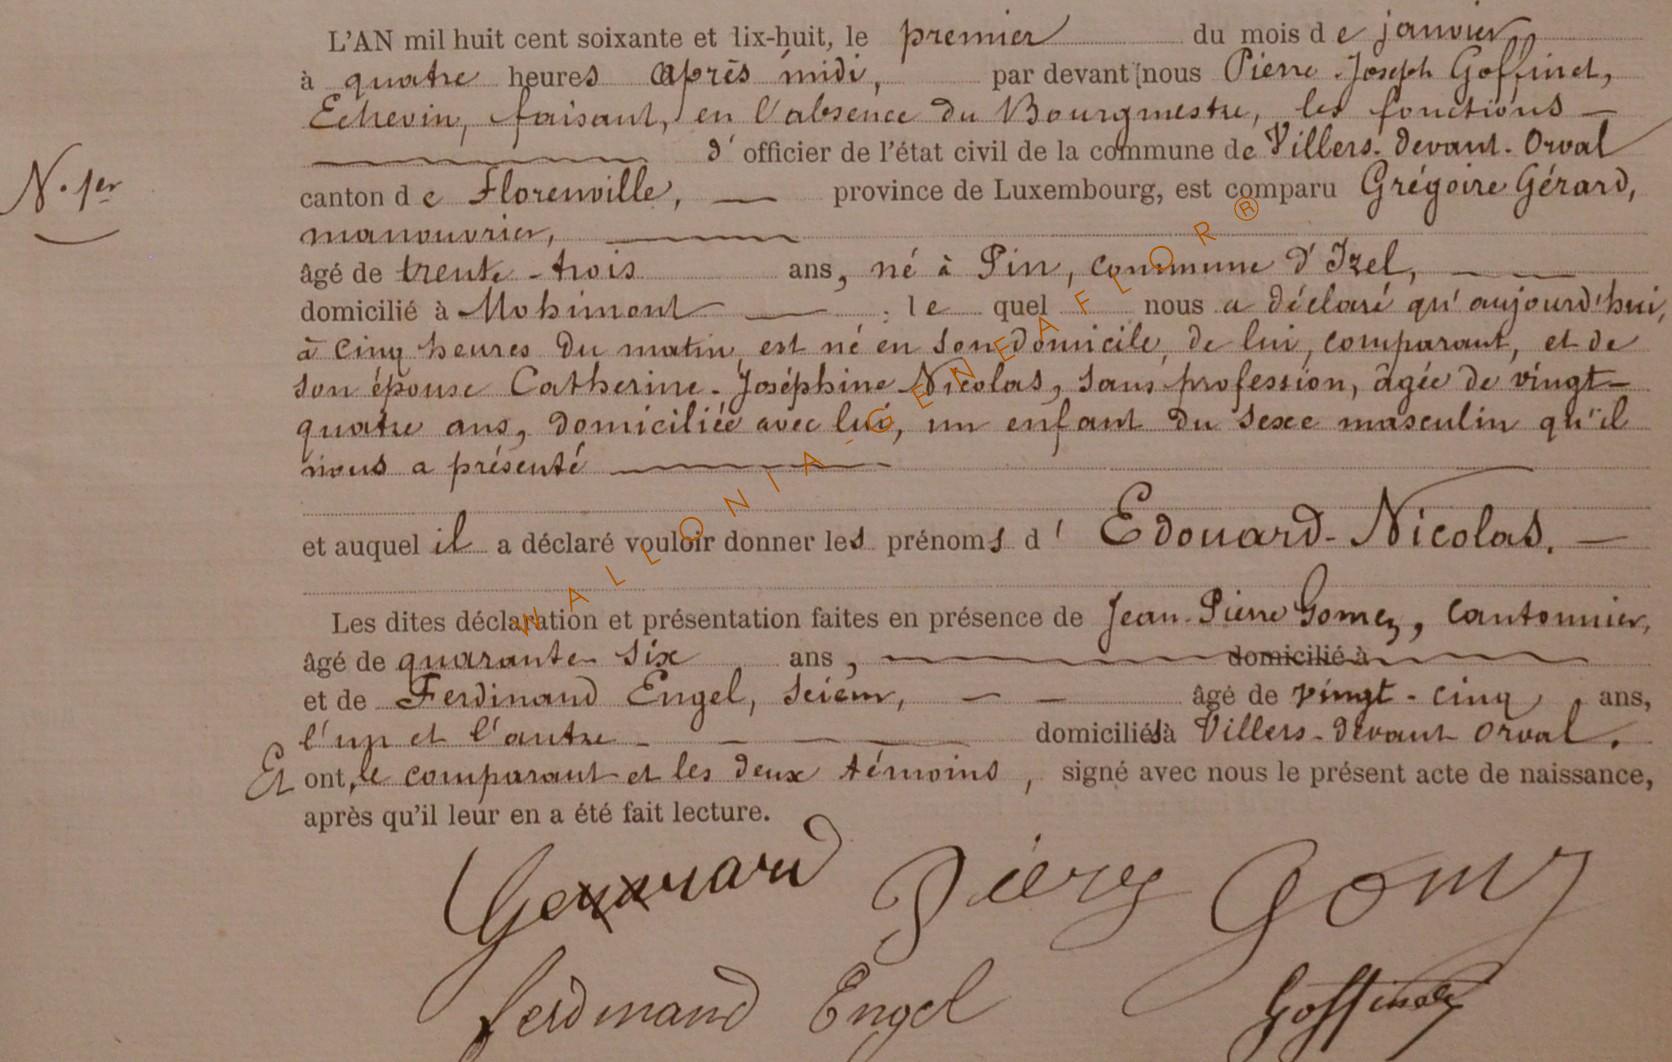 L'AN mil huit cent soixante et dix-huit, le premier du mois de janvier,
à quatre heures après midi, par devant nous Pierre-Joseph Goffinet,
Echevin, faisant, en l'absence du Bourgmestre, les fonctions
d' officier de l'état civil de la commune de Villers-devant-Orval
N. 1er
canton de Florenville, province de Luxembourg, est comparu Grégoire Gérard,
manouvrier,
âgé de trente-trois ans, né à Pin, commune d'Izel,
domicilié à Mohimont ; lequel nous a déclaré qu'aujourd'hui,
à cinq heures du matin, est né en son domicile, de lui, comparant, et de
son épouse Catherine-Joséphine Nicolas, sans profession, âgée de vingt-
quatre ans, domiciliée avec lui, un enfant du sexe masculin qu'il
nous a présenté
et auquel il a déclaré vouloir donner les prénoms d' Edouard-Nicolas.
Les dites déclaration et présentation faites en présence de Jean-Pierre Gomez, cantonnier,
âgé de quarante-six ans, domicilié à
et de Ferdinand Engel, scieur, âgé de vingt-cinq ans,
l'un et l'autre domiciliés à Villers-devant Orval.
Et ont, le comparant et les deux témoins, signé avec nous le présent acte de naissance,
après qu'il leur en a été fait lecture.
Gomz
Ferdinand Engel Goffinet
WALLONIA-GENEAFLOR®